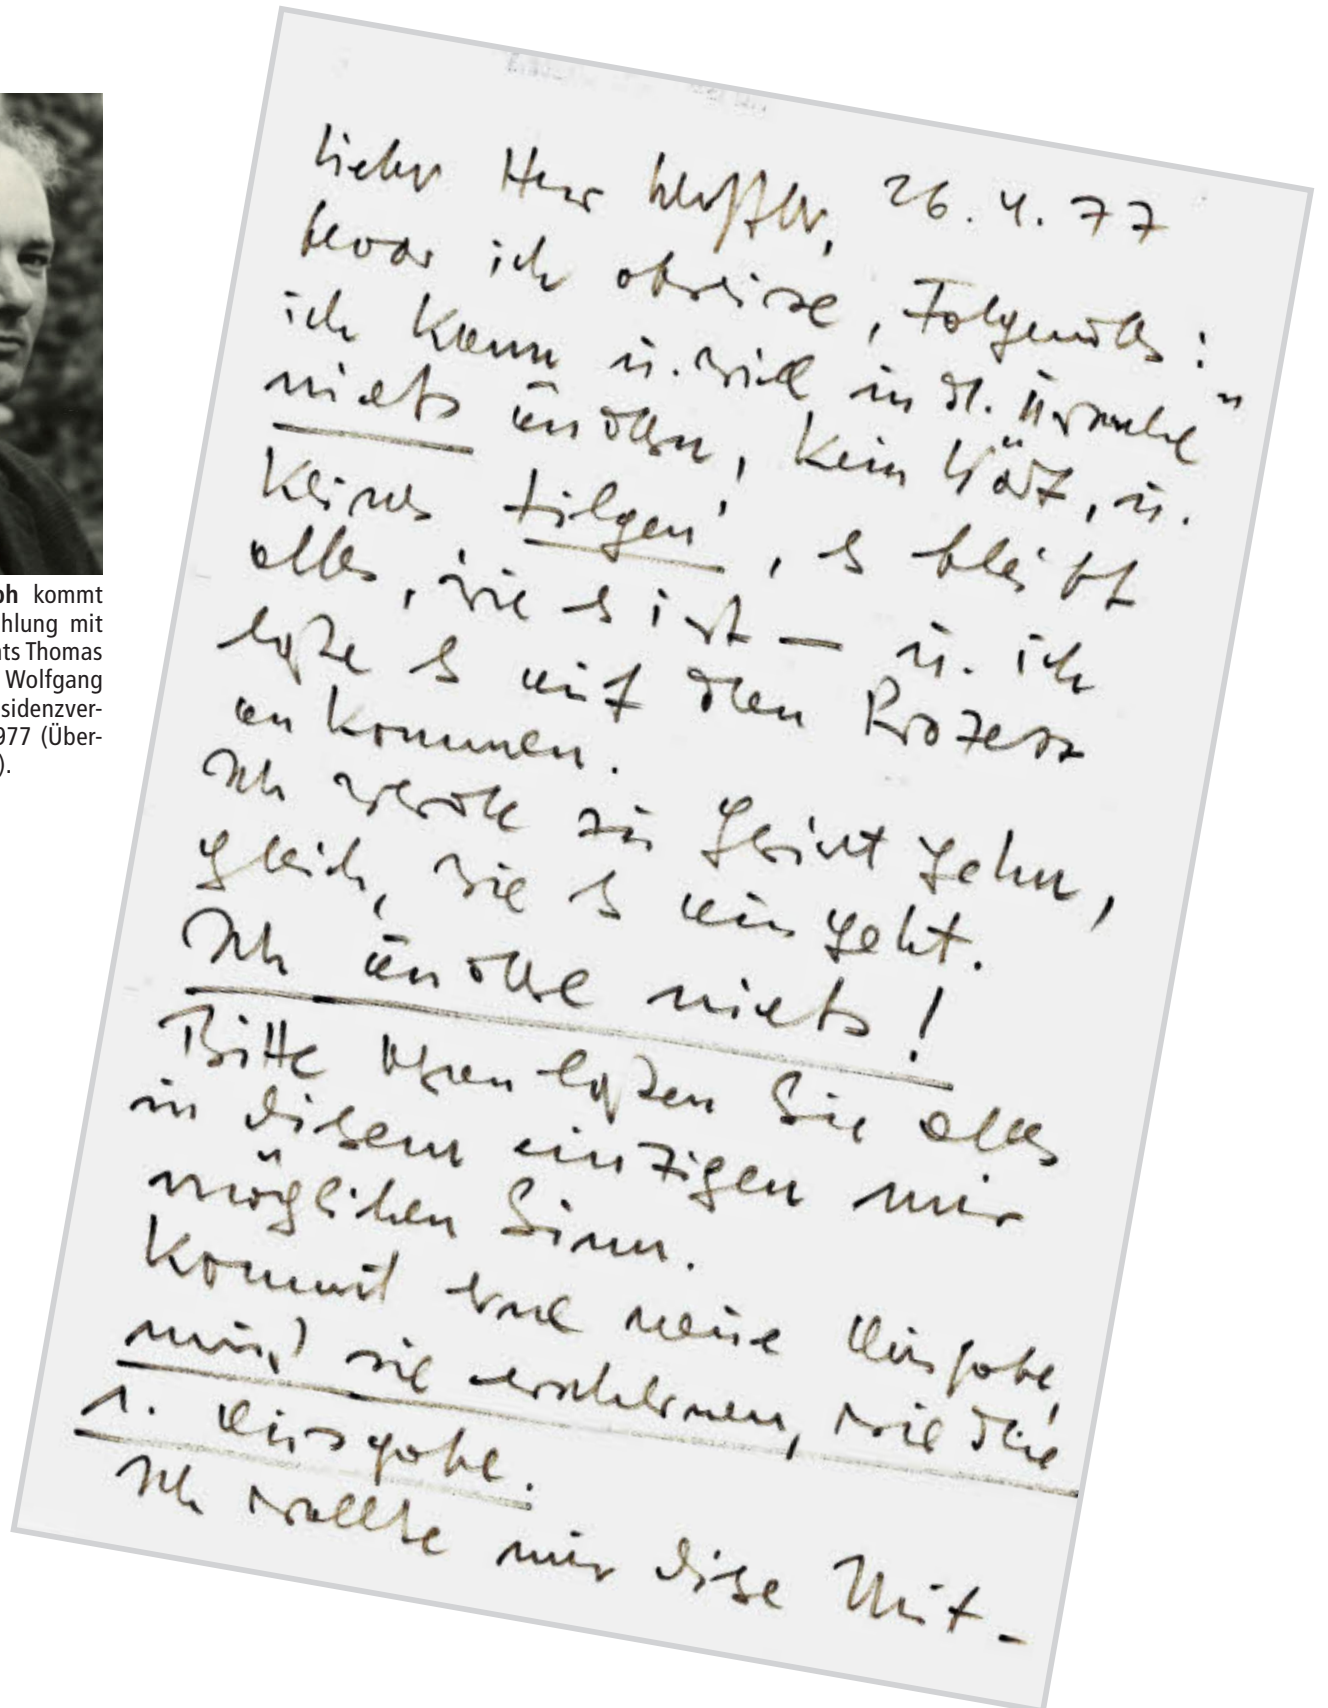 ph kommt
hlung mit
ts Thomas
Wolfgang
sidenzver-
977 (Über-
).
Lieber Herr Schaffler, 26.4.77
bevor ich abreise, Folgendes:
ich kann u. will in d. "Ursache"
nichts ändern, kein Wort, u.
keines tilgen, es bleibt
alles, wie es ist — u. ich
lasse es auf den Prozess
ankommen.
Ich werde zu Gericht gehn,
gleich, wie es ausgeht.
Ich ändere nichts!
Bitte veranlassen Sie alles
in diesem einzigen mir
möglichen Sinn.
Kommt eine neue Ausgabe,
muss sie erscheinen, wie die
1. Ausgabe.
Ich wollte mir diese Mit-